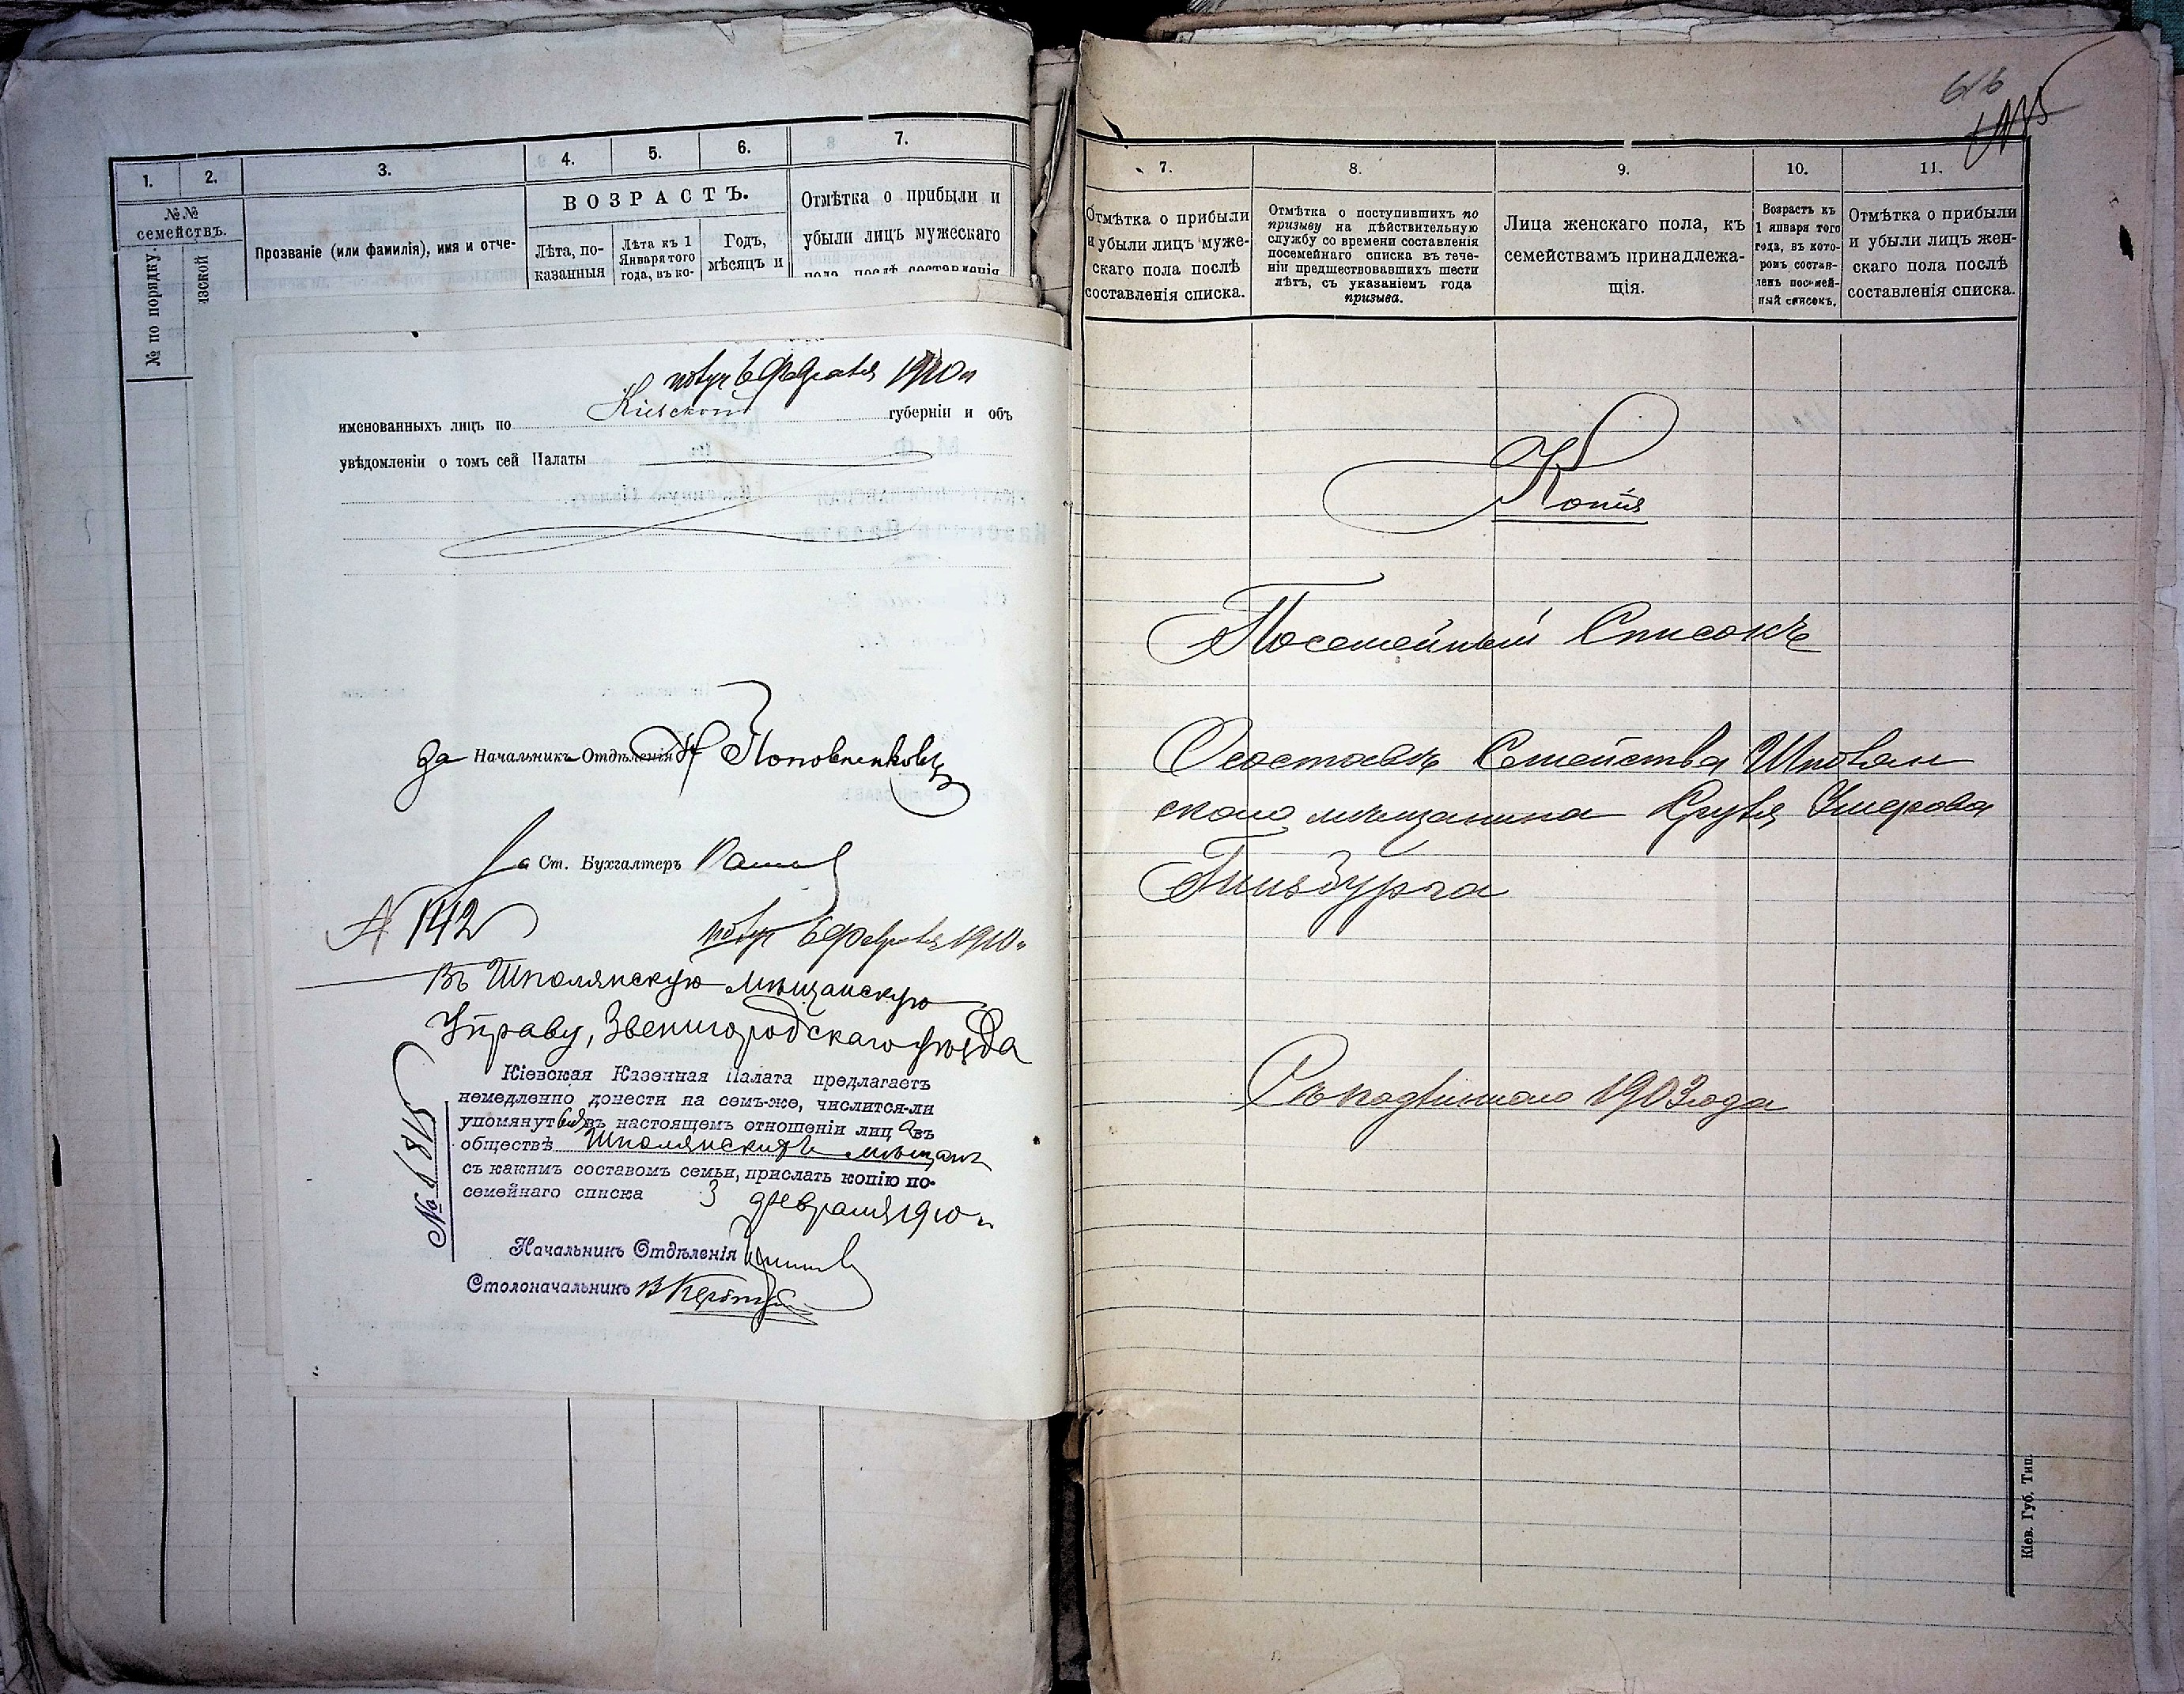 1.
2.
3.
4.
5.
6.
7.
№№ семействъ.
№ по порядку.
Прозваніе (или фамилія), имя и отче-
ВОЗРАСТЪ.
Лѣта, по-
казанныя
Лѣта къ 1
Января того
года, въ ко-
Годъ,
мѣсяцъ и
Отмѣтка о прибыли и
убыли лицъ мужескаго
пола послѣ составленія
6 Февраля 1910 г
именованныхъ лицъ по Кіевской губерніи и объ
увѣдомленіи о томъ сей Палаты
За Начальникъ Отдѣленія
За Ст. Бухгалтеръ
№ 142
6 Февраля 1910 г
Въ Шполянскую мѣщанскую
Управу, Звенигородскаго уѣзда
Кіевская Казенная Палата предлагаетъ
немедленно донести на семъ-же, числится-ли
упомянутый въ настоящемъ отношеніи лица въ
обществѣ Шполянскихъ мѣщанъ
съ какимъ составомъ семьи, прислать копію по-
семейнаго списка 3 февраля 1910 г.
Начальникъ Отдѣленія
Столоначальникъ
7.
8.
9.
10.
11.
Отмѣтка о прибыли
и убыли лицъ муже-
скаго пола послѣ
составленія списка.
Отмѣтка о поступившихъ по
призыву на дѣйствительную
службу со времени составленія
посемейнаго списка въ тече-
ніи предшествовавшихъ шести
лѣтъ, съ указаніемъ года
призыва.
Лица женскаго пола, къ
семействамъ принадлежа-
щія.
Возрастъ къ
1 января того
года, въ кото-
ромъ состав-
ленъ посемей-
ный списокъ.
Отмѣтка о прибыли
и убыли лицъ жен-
скаго пола послѣ
составленія списка.
Копія
Посемейный Списокъ
О составѣ Семейства Шполян
скаго мѣщанина Умерова
Гинзбурга
Съ подлиннаго 1903 года
Кіев. Губ. Тип.